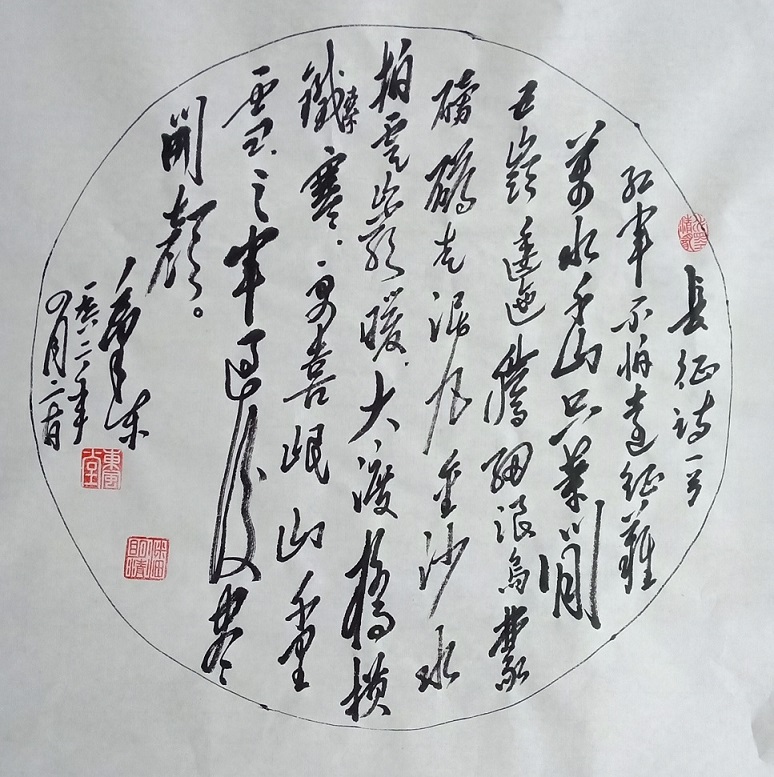 長征诗一首
红军不怕遠征難
萬水千山只等閒
五嶺逶迤騰細浪烏蒙
磅礴走泥丸金沙水
拍雲崖暖大渡橋橫
鐵索寒更喜岷山千里
雪三军過後盡
開顏。
毛澤东
一九六二年
四月二十日